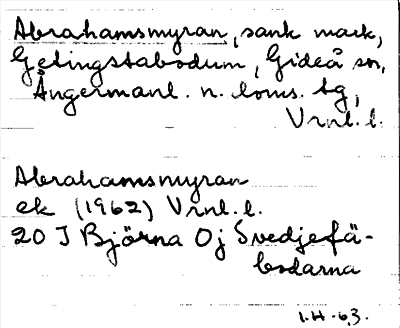 Abrahamsmyran, sank mark,
Getingstabodum, Gideå sn,
Ångermanl. n. doms. tg,
Vrnl. l.
Abrahamsmyran
ek (1962) Vrnl. l.
20 J Björna Oj Svedjefä-
bodarna
1.H.63.